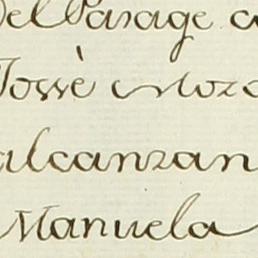 Del Parage
Josse Moz
alcanzan
Manuela